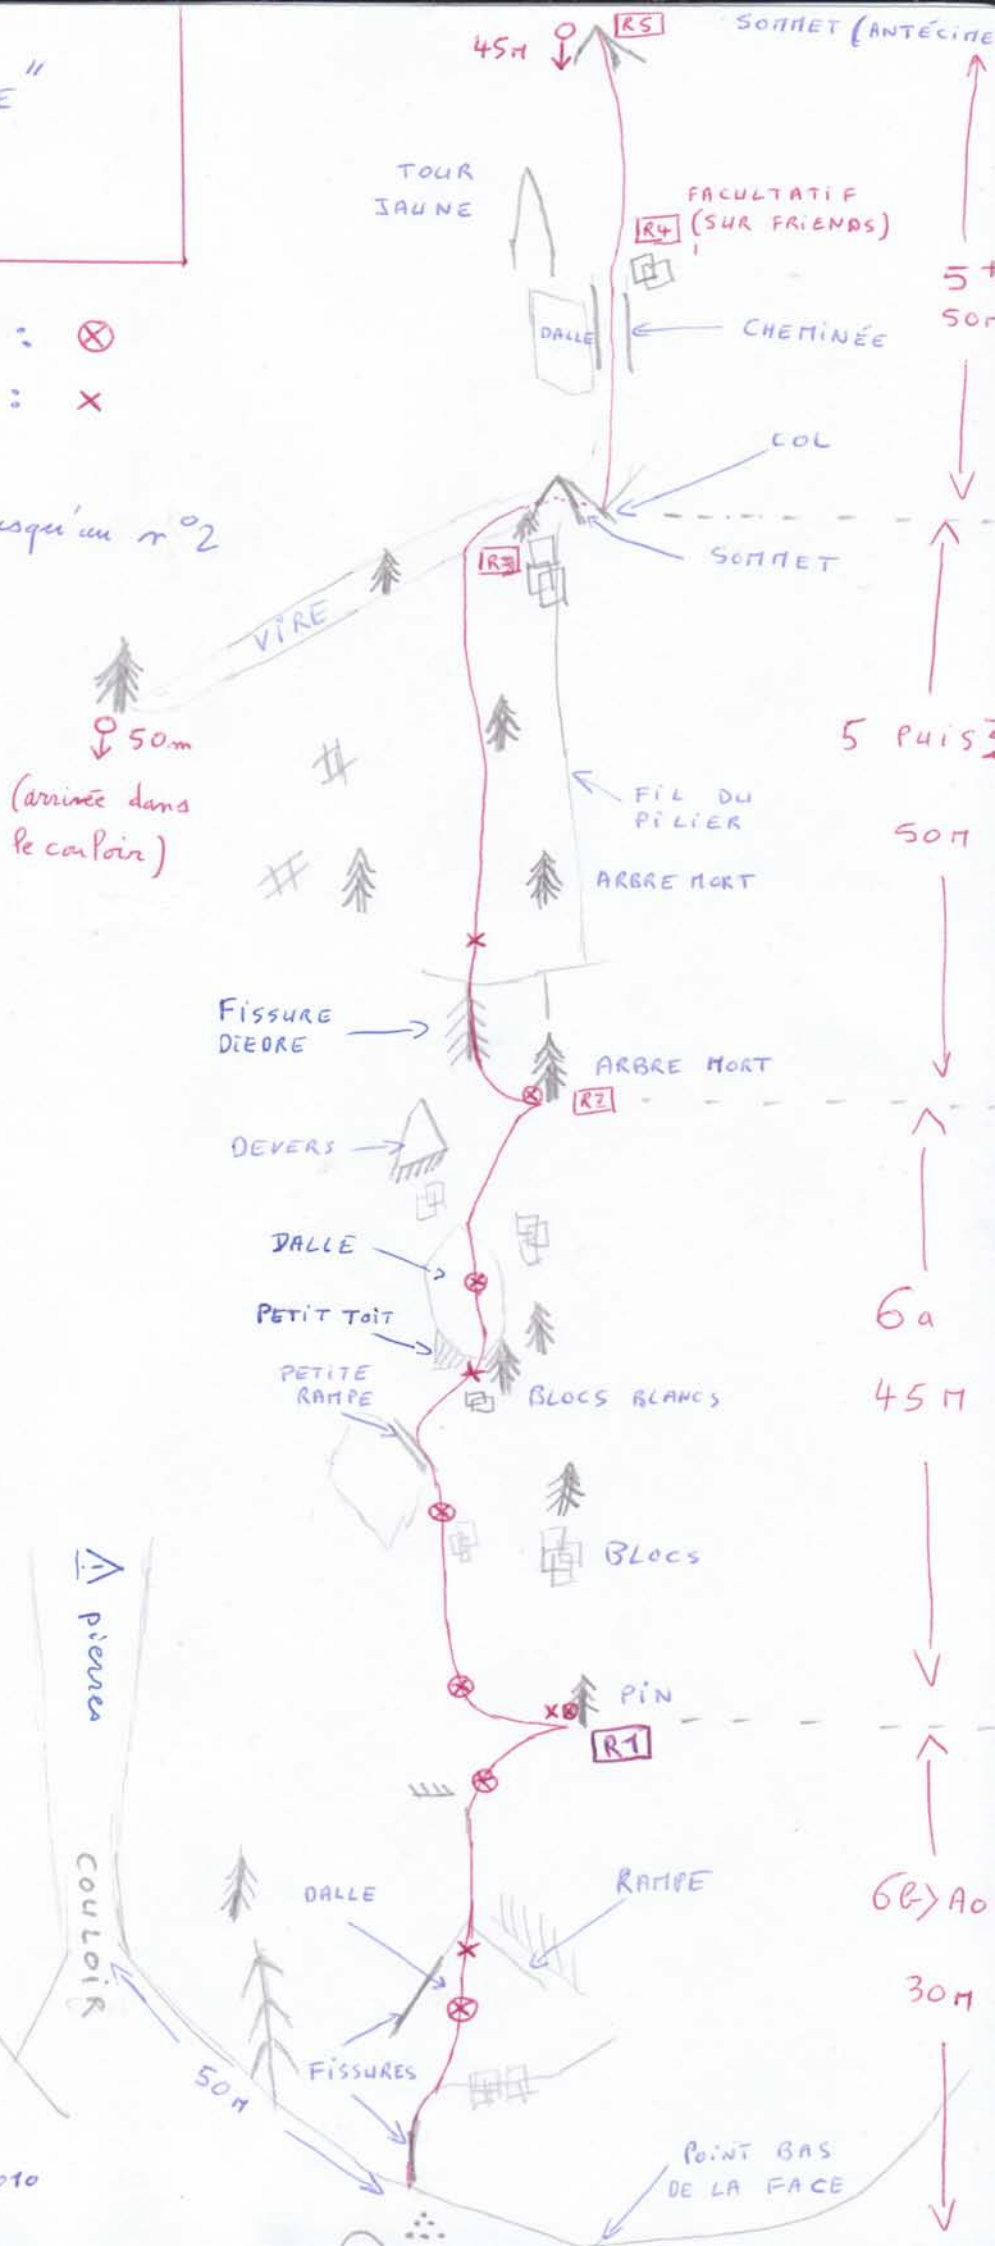 R5
SOMMET (ANTÉCIME
45M
"
E
TOUR
JAUNE
FACULTATIF
R4 (SUR FRIENDS)
5+
50M
DALLE
CHEMINÉE
:
:
COL
usqu'au n°2
SOMMET
R3
VIRE
50m
(arrivée dans
le couloir)
5 PUIS 3
50M
FIL DU
PILIER
ARBRE MORT
FISSURE
DIEDRE
ARBRE MORT
R2
DEVERS
DALLE
PETIT TOIT
PETITE
RAMPE
BLOCS BLANCS
6a
45M
BLOCS
pierres
PIN
R1
COULOIR
DALLE
RAMPE
6b>A0
30M
FISSURES
50M
POINT BAS
DE LA FACE
010